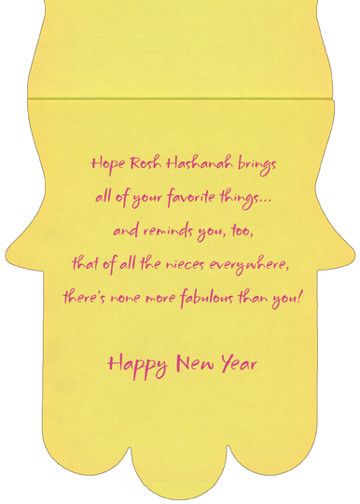 Hope Rosh Hashanah brings
all of your favorite things...
and reminds you, too,
that of all the nieces everywhere,
there's none more fabulous than you!
Happy New Year